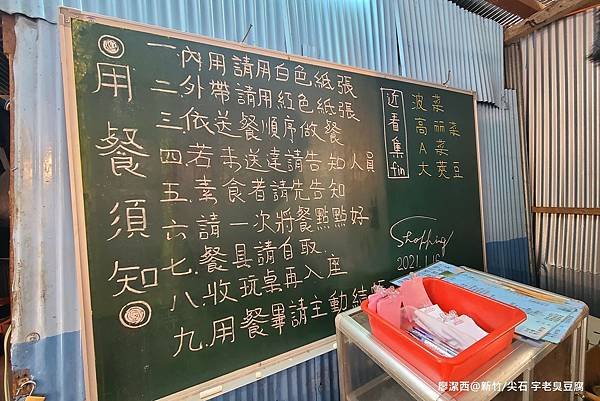 用餐須知
一.內用請用白色紙張
二.外帶請用紅色紙張
三.依送餐順序做餐
四若未送達請告知人員
五.素食者請先告知
六請一次將餐點點好
七.餐具請自取.
八.收玩桌再入座
九.用餐畢請主動結
近看集fin
波菜
高丽菜
A菜
大莢豆
Shopping
2021.1.16
廖潔西@新竹/尖石 字老臭豆腐